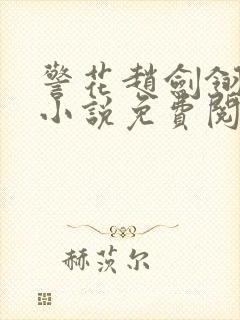 警花趙劍翎
小說免費閱
赫茨尔